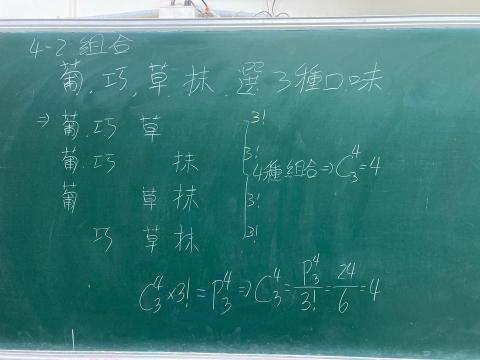 4-2 組合
葡.巧.草.抹.選3種口味
⇒ 葡.巧 草 3!
葡.巧 抹 3!
4種組合⇒C⁴₃=4
葡 草 抹 3!
巧 草 抹 3!
C⁴₃×3!=P⁴₃⇒C⁴₃=P⁴₃/3!=24/6=4